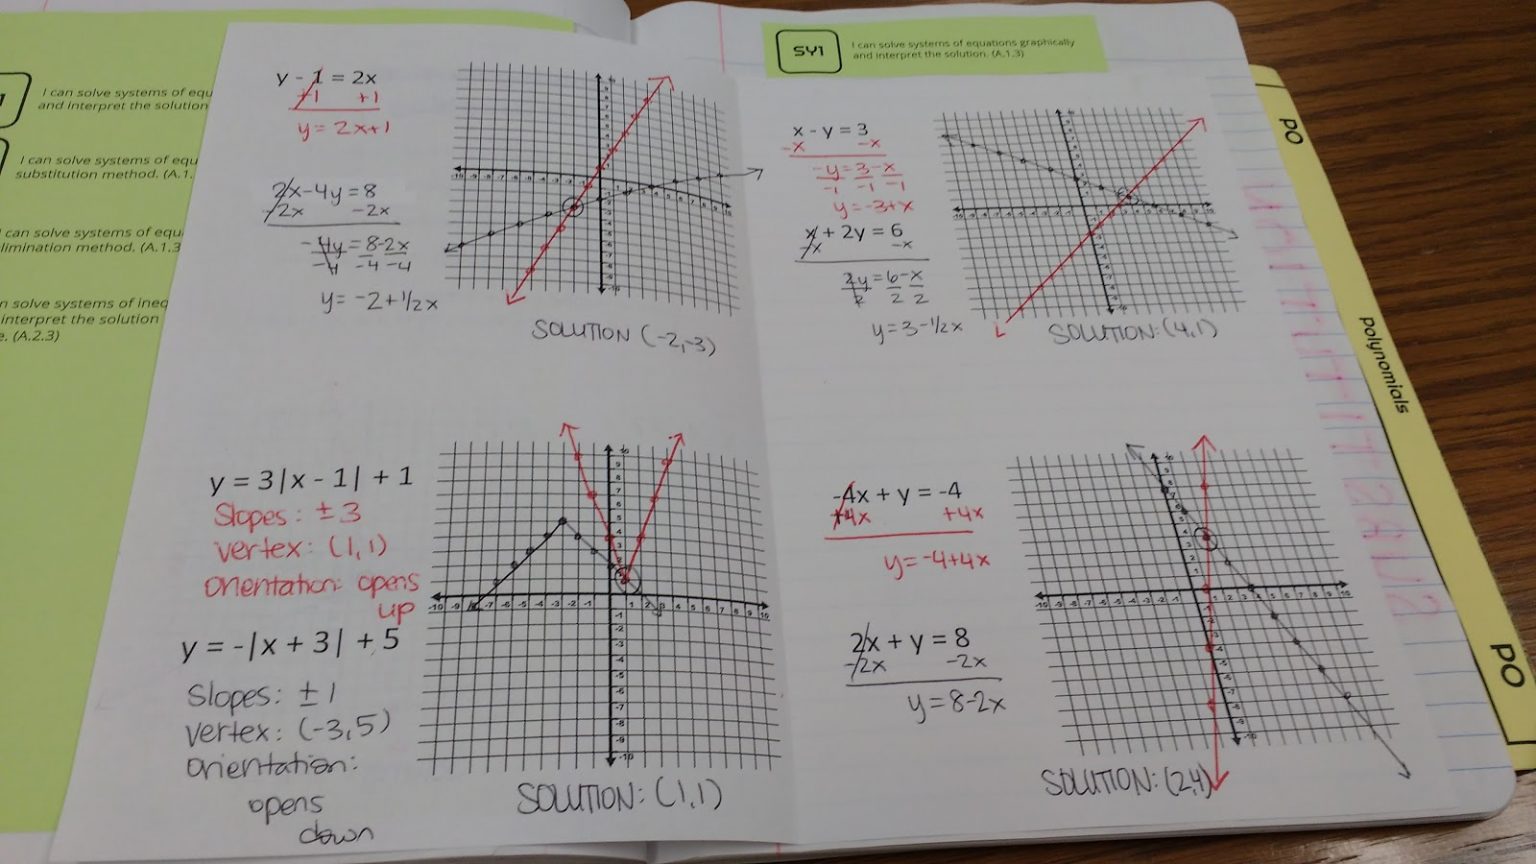 I can solve systems of equ
and interpret the solution
I can solve systems of equ
substitution method. (A.1.
can solve systems of equ
limination method. (A.1.3
n solve systems of ineq
interpret the solution
e. (A.2.3)
y - 1 = 2x
+1 +1
y = 2x+1
2x-4y=8
-2x -2x
-4y = 8-2x
-4 -4 -4
y = -2+1/2x
SOLUTION (-2,-3)
y = 3|x - 1| + 1
Slopes: ±3
vertex: (1,1)
orientation: opens
up
y = -|x + 3| + 5
Slopes: ±1
vertex: (-3,5)
orientation:
opens
down
SOLUTION: (1,1)
SY1
I can solve systems of equations graphically
and interpret the solution. (A.1.3)
x - y = 3
-x -x
-y = 3-x
-1 -1 -1
y = -3+x
x + 2y = 6
-x -x
2y = 6-x
2 2 2
y = 3-1/2x
SOLUTION: (4,1)
-4x + y = -4
+4x +4x
y = -4+4x
2x + y = 8
-2x -2x
y = 8-2x
SOLUTION: (2,4)
PO
polynomials
PO